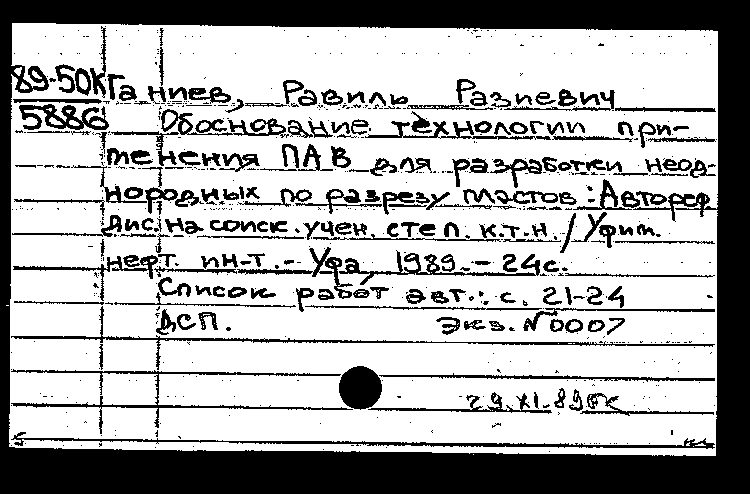 89-50К Ганиев, Равиль Разиевич
5886 Обоснование технологии при-
менения ПАВ для разработки неод-
нородных по разрезу пластов : Автореф
Дис. на соиск. учен. степ. к.т.н. / Уфим.
нефт. ин-т. - Уфа, 1989. - 24с.
Список работ авт.: с. 21-24
ДСП. Экз. №0007
29.XI.89